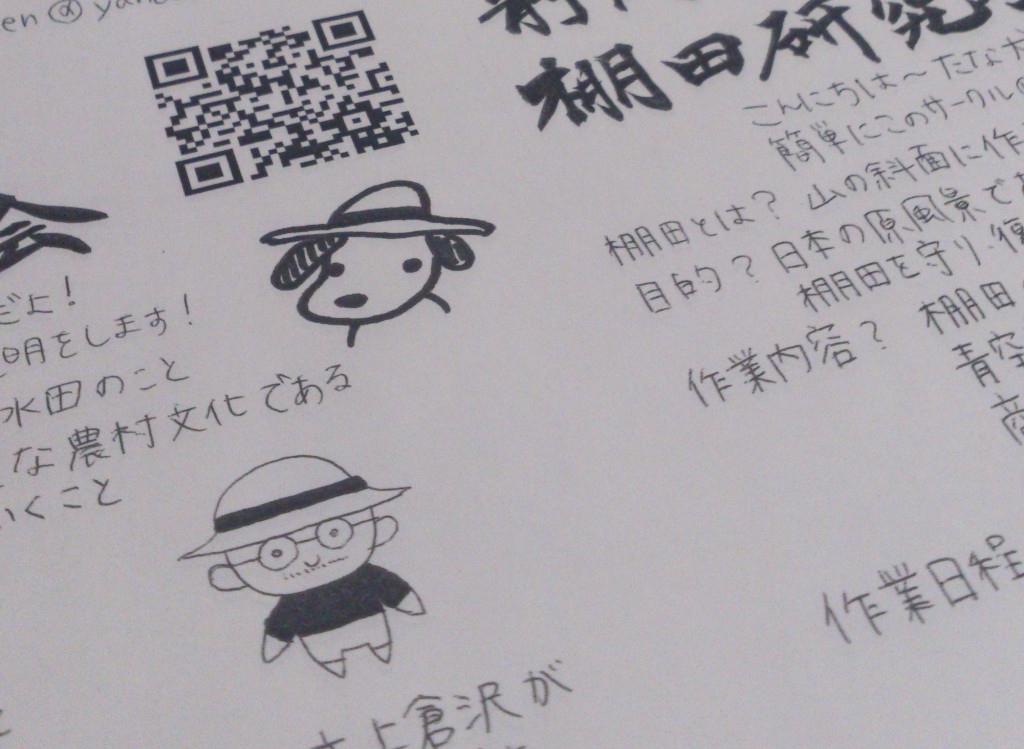 棚田研究
会
こんにちは〜たなか
だよ!
簡単にこのサークルの
明をします!
棚田とは? 山の斜面に作
水田のこと
目的? 日本の原風景で
な農村文化である
棚田を守り・復
いくこと
作業内容? 棚田
青空
作業日程
上倉沢が